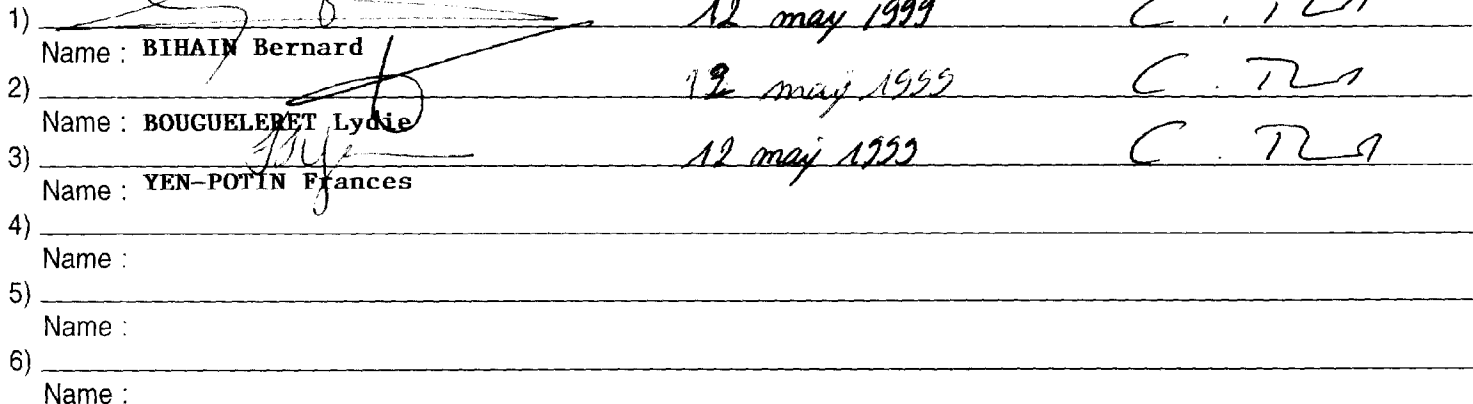 1) 12 may 1999
Name : BIHAIN Bernard
2) 12 may 1999
Name : BOUGUELERET Lydie
3) 12 may 1999
Name : YEN-POTIN Frances
4)
Name :
5)
Name :
6)
Name :